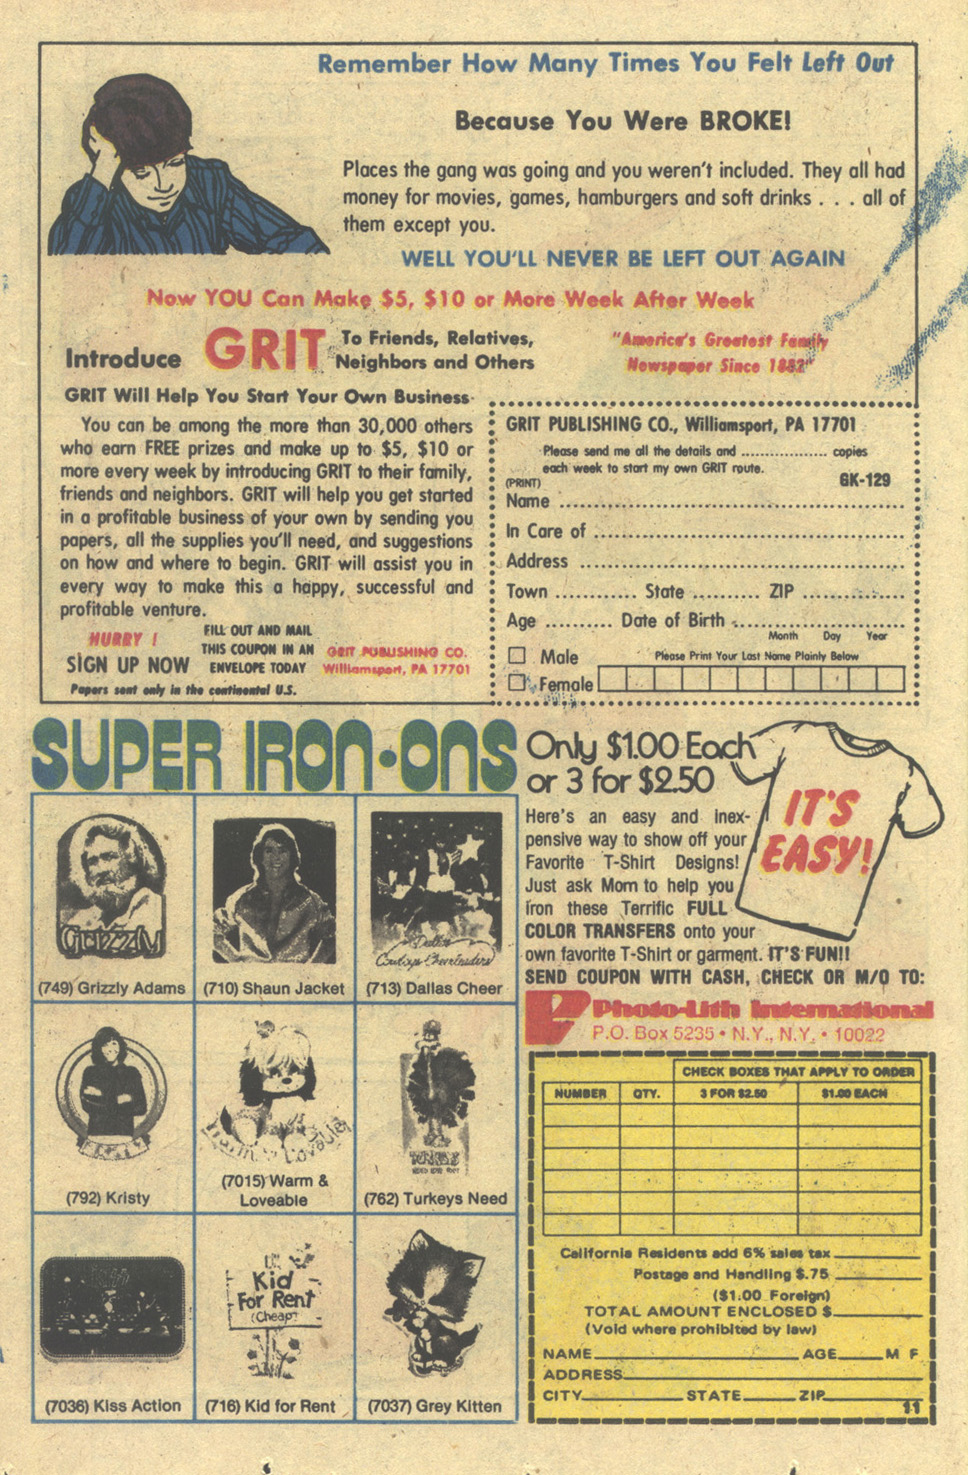 Remember How Many Times You Felt Left Out
Because You Were BROKE!
Places the gang was going and you weren't included. They all had
money for movies, games, hamburgers and soft drinks . . . all of
them except you.
WELL YOU'LL NEVER BE LEFT OUT AGAIN
Now YOU Can Make $5, $10 or More Week After Week
Introduce GRIT To Friends, Relatives,
Neighbors and Others
"America's Greatest Family
Newspaper Since 1882"
GRIT Will Help You Start Your Own Business
You can be among the more than 30,000 others
who earn FREE prizes and make up to $5, $10 or
more every week by introducing GRIT to their family,
friends and neighbors. GRIT will help you get started
in a profitable business of your own by sending you
papers, all the supplies you'll need, and suggestions
on how and where to begin. GRIT will assist you in
every way to make this a happy, successful and
profitable venture.
HURRY !
SIGN UP NOW
FILL OUT AND MAIL
THIS COUPON IN AN
ENVELOPE TODAY
GRIT PUBLISHING CO.
Williamsport, PA 17701
Papers sent only in the continental U.S.
GRIT PUBLISHING CO., Williamsport, PA 17701
Please send me all the details and ................. copies
each week to start my own GRIT route.
(PRINT)
GK-129
Name
In Care of
Address
Town ............ State .......... ZIP ...............
Age .......... Date of Birth
Month Day Year
Male
Please Print Your Last Name Plainly Below
Female
SUPER IRON-ONS
Grizzly
(749) Grizzly Adams
(710) Shaun Jacket
Dallas
Cowboys Cheerleaders
(713) Dallas Cheer
(792) Kristy
Warm & Loveable
(7015) Warm &
Loveable
TURKEYS
NEED LOVE TOO!
(762) Turkeys Need
(7036) Kiss Action
Kid
For Rent
(Cheap)
(716) Kid for Rent
(7037) Grey Kitten
Only $1.00 Each
or 3 for $2.50
IT'S
EASY!
Here's an easy and inex-
pensive way to show off your
Favorite T-Shirt Designs!
Just ask Mom to help you
iron these Terrific FULL
COLOR TRANSFERS onto your
own favorite T-Shirt or garment. IT'S FUN!!
SEND COUPON WITH CASH, CHECK OR M/O TO:
Photo-Lith International
P.O. Box 5235 • N.Y., N.Y. • 10022
CHECK BOXES THAT APPLY TO ORDER
NUMBER QTY. 3 FOR $2.50 $1.00 EACH
California Residents add 6% sales tax
Postage and Handling $.75
($1.00 Foreign)
TOTAL AMOUNT ENCLOSED $
(Void where prohibited by law)
NAME AGE M F
ADDRESS
CITY STATE ZIP
11